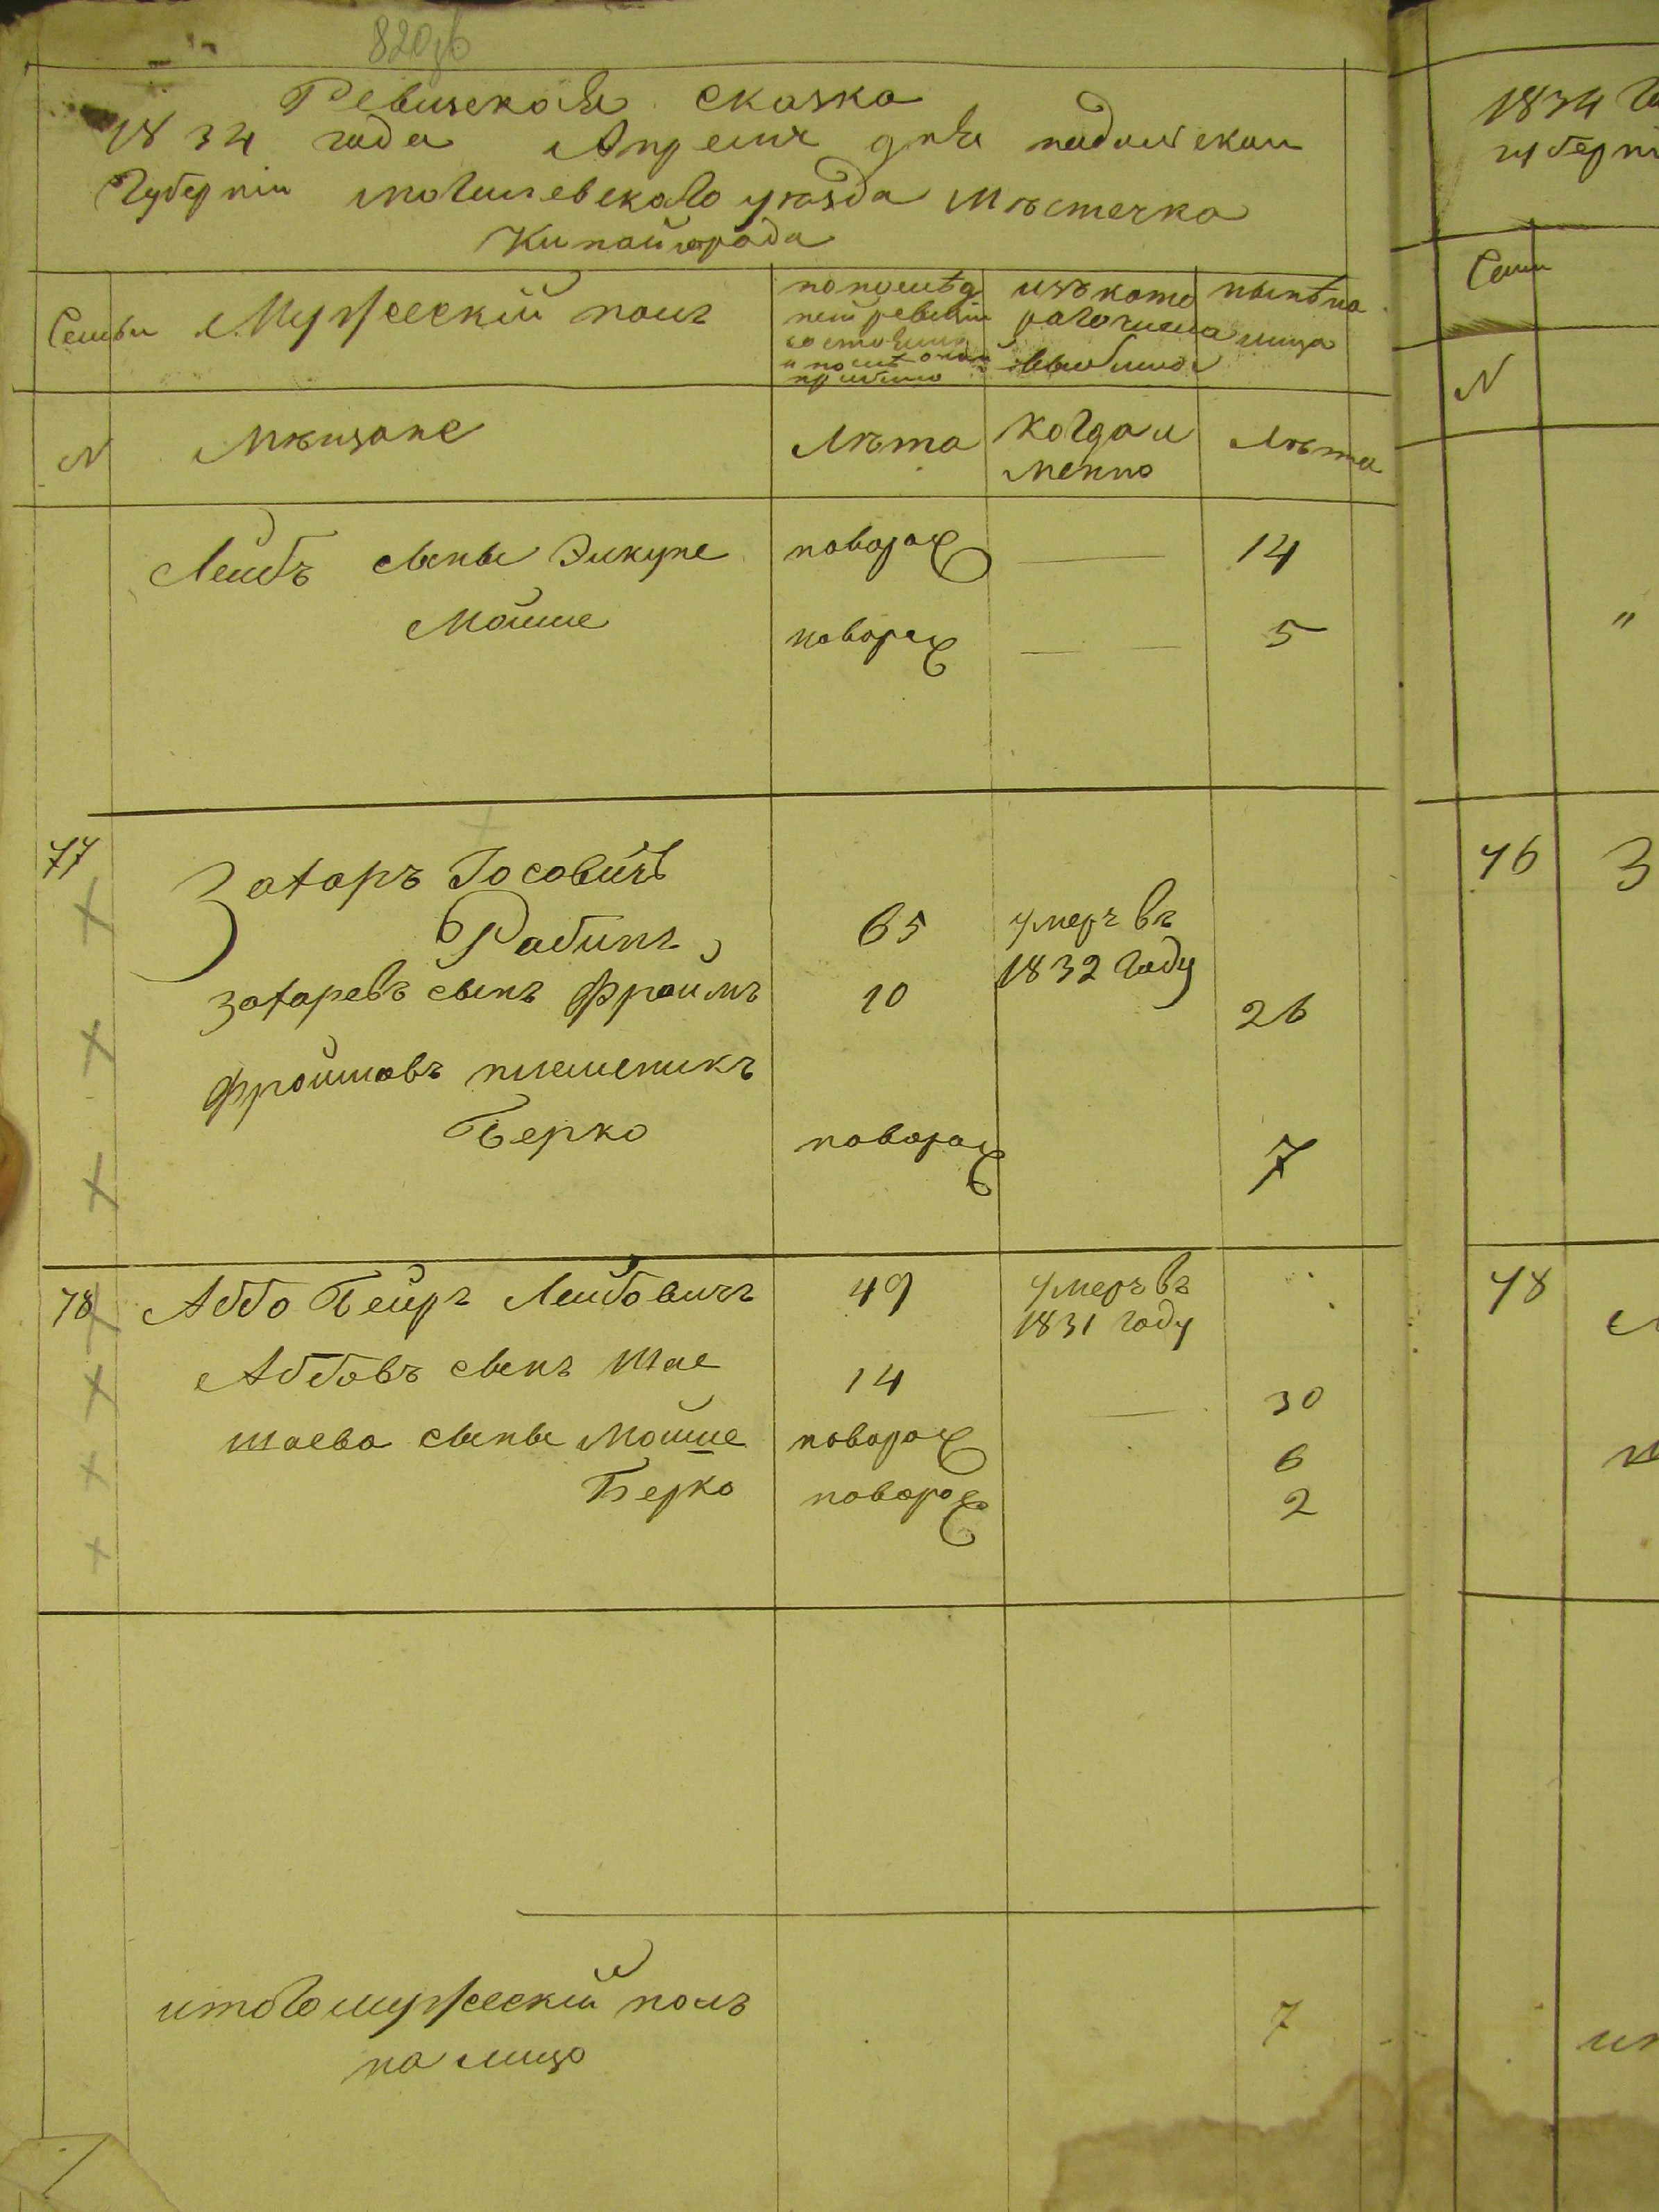 820об
Ревизская сказка
1834 года Апреля дня подольской
Губерніи могилевскаго уѣзда мѣстечка
Китайгорода
Семьи Мужескій полъ
по послѣд
ней ревизіи
состояло
и послѣ оной
прибыло
изъ того
числа
выбыло
нынѣ на
лицо
N мѣщане Лѣта Когда и
менно Лѣта
Лейбъ сыны Элкуне новорож 14
Мойше новорож 5
77 Захаръ Іосовичъ
Рабинъ 65 умеръ въ
1832 году
Захаровъ сынъ Фроимъ 10 26
Фроимовъ племеникъ
Берко новорож 7
78 Аббо Бейръ Лейбовичъ 49 умеръ въ
1831 году
Аббовъ сынъ Шае 14 30
Шаева сыны Мойше новорож 6
Берко новорож 2
итого мужескій полъ
на лицо 7
1834 го
губерні
Семьи
N
"
76 З
78
ит